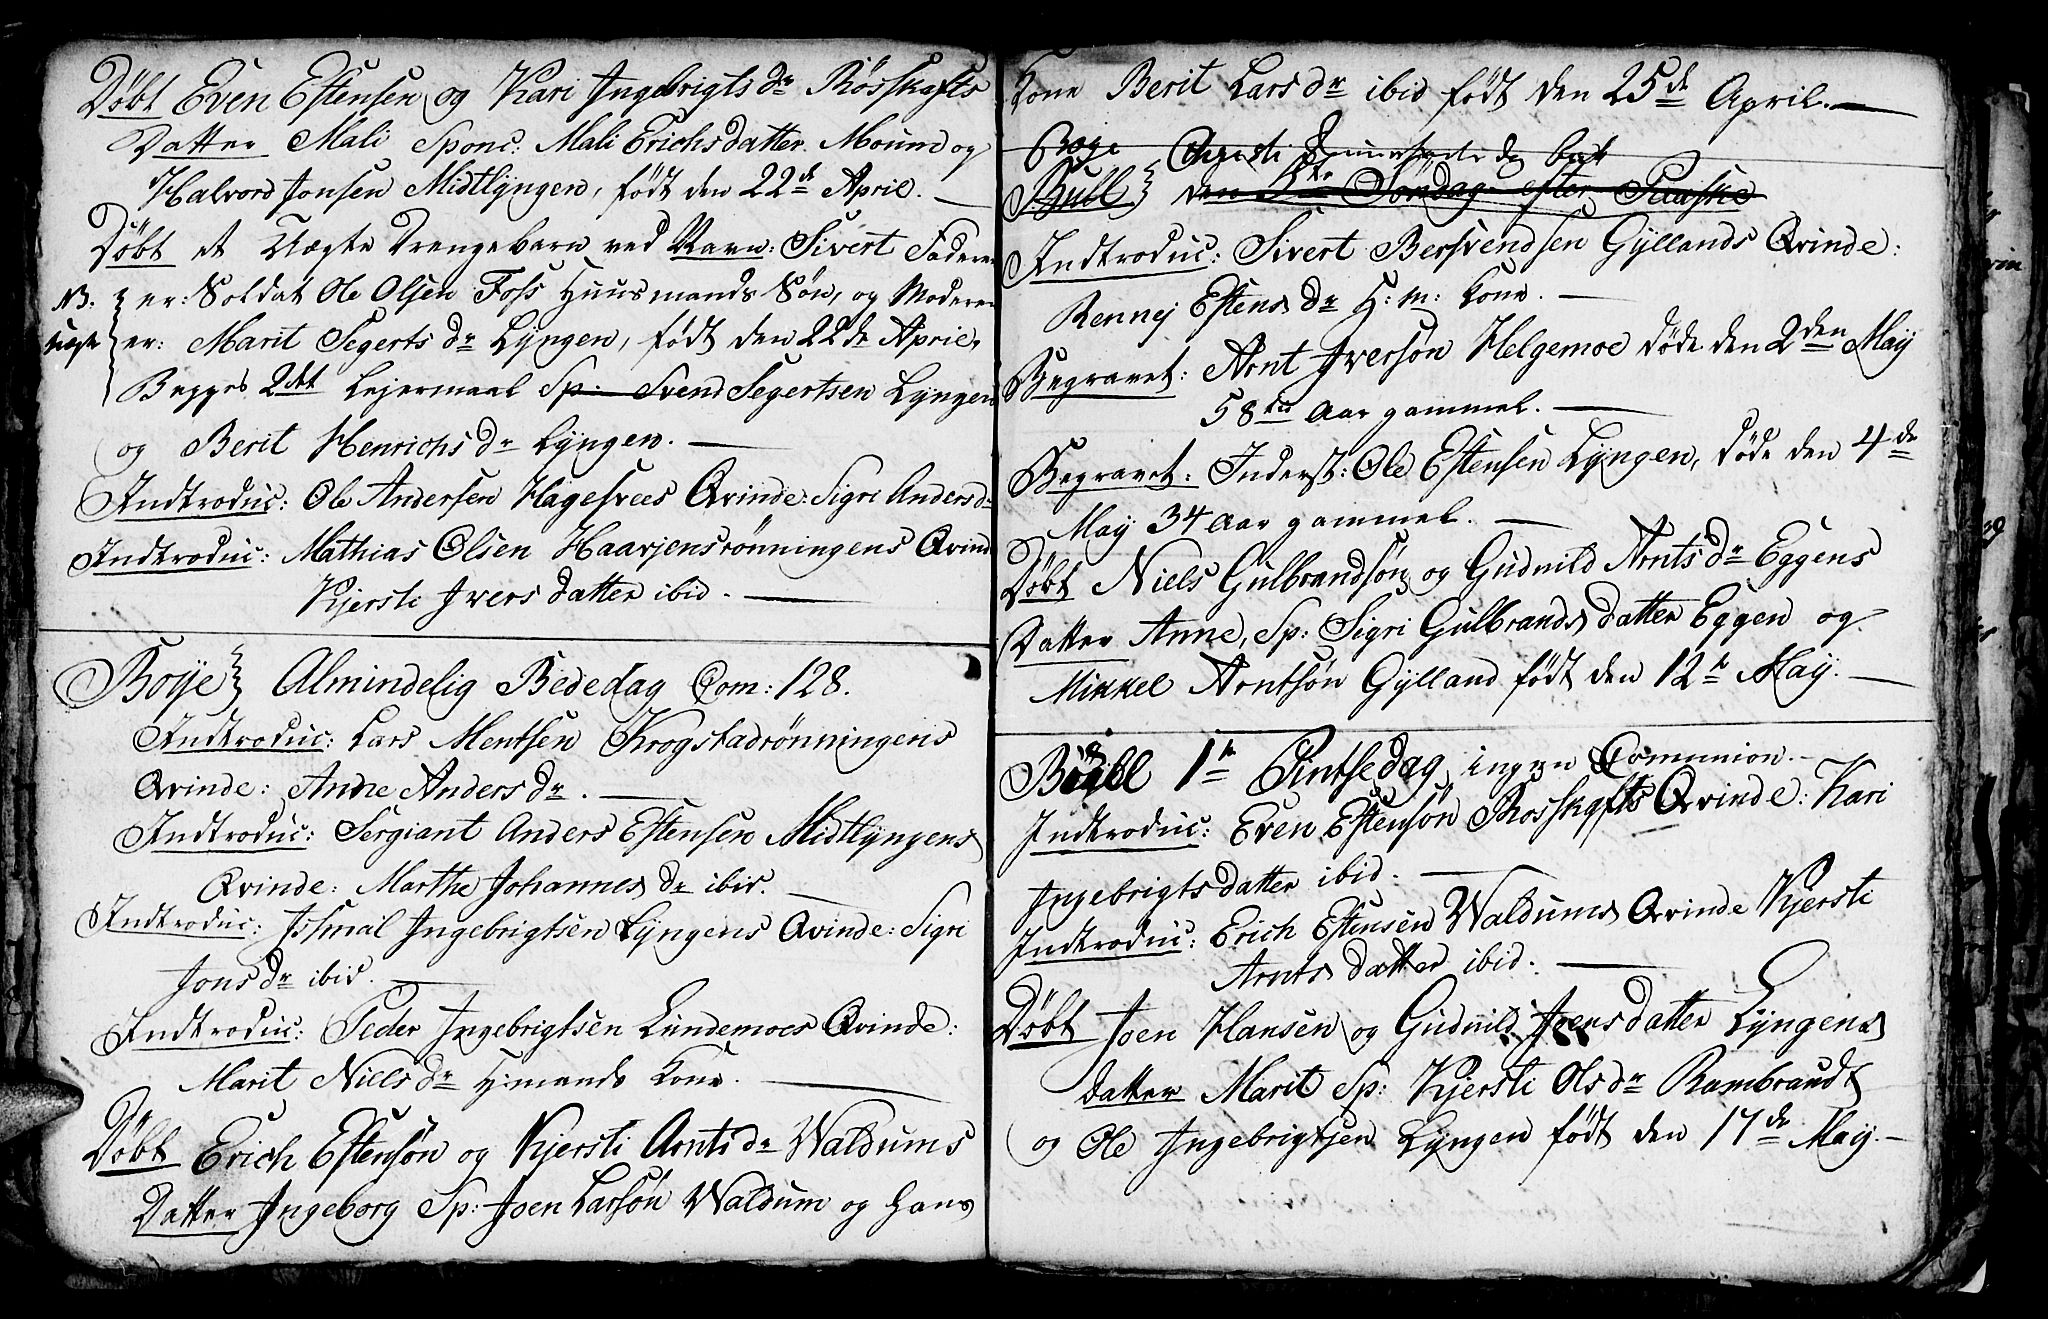 Döbt Even Estensen og Kari Ingebrigts dr Rösskafts
Datter Mali Sponc: Mali Erichsdatter Moumo og
Halvord Jonsen Midtlyngen, född den 22de April.
Döbt et Uægte Drengebarn ved Navn: Sivert Faderen
NB: er: Soldat Ole Olsen Foss Huusmands Sön, og Moderen
uægte er: Marit Segerts dr Lyngen, född den 22de April,
Begges 2det Lejermaal Sp: Svend Segertsen Lyngen
og Berit Henrichs dr Lyngen.
Indtroduc: Ole Andersen Hagesvees Qvinde: Sigri Anders dr
Indtroduc: Mathias Olsen Haarjensrönningens Qvinde
Kjersti Ivers datter ibid.
Boye Almindelig Bededag Com: 128.
Indtroduc: Lars Mentsen Krogstadrönningens
Qvinde: Anne Anders dr.
Indtroduc: Sergiant Anders Estensen Midtlyngens
Qvinde: Marthe Johannes dr ibid.
Indtroduc: Issmal Ingebrigtsen Lyngens Qvinde: Sigri
Jons dr ibid.
Indtroduc: Peder Ingebrigtsen Lundemoes Qvinde:
Marit Niels dr H:mands Kone.
Döbt Erich Estensön og Kjersti Arnts dr Waldums
Datter Ingeborg Sp: Joen Larsön Waldum og Hans
Kone Berit Lars dr ibid född den 25de April.
Boye Christi
Bull den 5te Söndag efter Paaske
Indtroduc: Sivert Bersvendsen Gyllands Qvinde:
Rennej Estens dr H: m: Kone.
Begravet: Arnt Iversön Helgemoe döde den 2den May
58 Aar gammel.
Begravet: Inderst: Ole Estensen Lyngen, döde den 4de
May 34 Aar gammel.
Döbt Niels Gulbrandsön og Gudnild Arnts dr Eggens
Datter Anne, Sp: Sigri Gulbrands datter Eggen og
Mikkel Arntsön Gylland född den 12te May.
Bull 1te Pintsedag ingen Comunion.
Indtroduc: Even Estensön Rosskafts Qvinde: Kari
Ingebrigts datter ibid.
Indtroduc: Erich Estensen Waldums Qvinde Kjersti
Arnts datter ibid.
Döbt Joen Hansen og Gudnild Joens datter Lyngens
Datter Marit Sp: Kjersti Ols dr Rambraudt
og Ole Ingebrigtsen Lyngen född den 17de May.